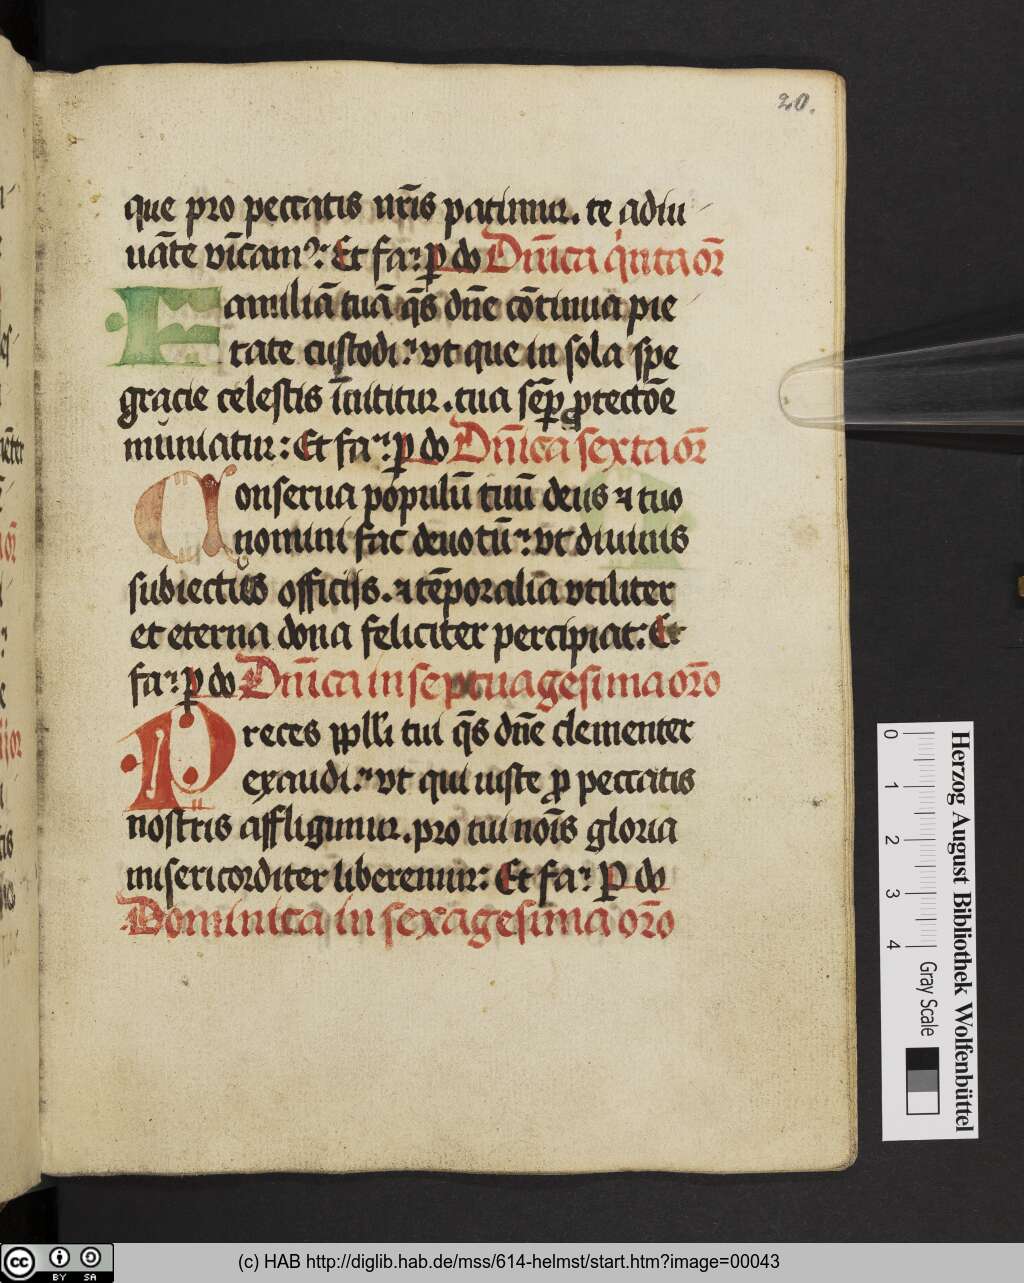 20.
que pro peccatis nr̄is patimur. te adiu
uāte vīcam⁹: Et fa⁊ ꝑ do Dn̄ica q'nta or̄
Familiā tuā q̄s dn̄e cōtinua pie
tate custodi: vt que in sola spe
gracie celestis īnititur. tua sēꝑ ꝓtectōe
muniatur: Et fa⁊ ꝑ do Dn̄ica sexta or̄
Conserua populū tuū deus ⁊ tuo
nomini fac deuotū: vt diuinis
subiectus officijs. ⁊ tēporalia vtiliter
et eterna dona feliciter percipiat: Et
fa⁊ ꝑ do Dn̄ica in septuagesima or̄o
Preces ppl̄i tui q̄s dn̄e clementer
exaudi: vt qui iuste ꝓ peccatis
nostris affligimur. pro tui nōis gloria
misericorditer liberemur: Et fa⁊ ꝑ do
Dominica in sexagesima or̄o
Herzog August Bibliothek Wolfenbüttel
0 1 2 3 4 Gray Scale
cc BY SA
(c) HAB http://diglib.hab.de/mss/614-helmst/start.htm?image=00043